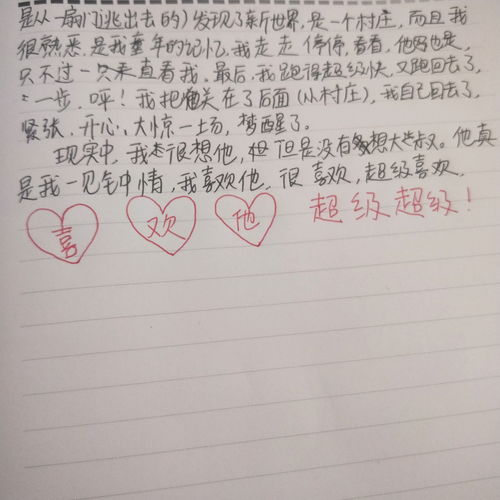 是从一扇门逃出去的)发现了新世界,是一个村庄,而且我
很熟悉,是我童年的记忆,我走走停停,看看,他妈也是,
只不过一只来直看我.最后,我跑得超级快,又跑回去了,
一步,呼!我把他关在了后面(从村庄),我自己回去了,
紧张、开心、大惊一场,梦醒了。
现实中,我很想他,但是没有想大叔。他真
是我一见钟情,我喜欢他.很喜欢,超级喜欢.
喜 欢 他 超级超级!